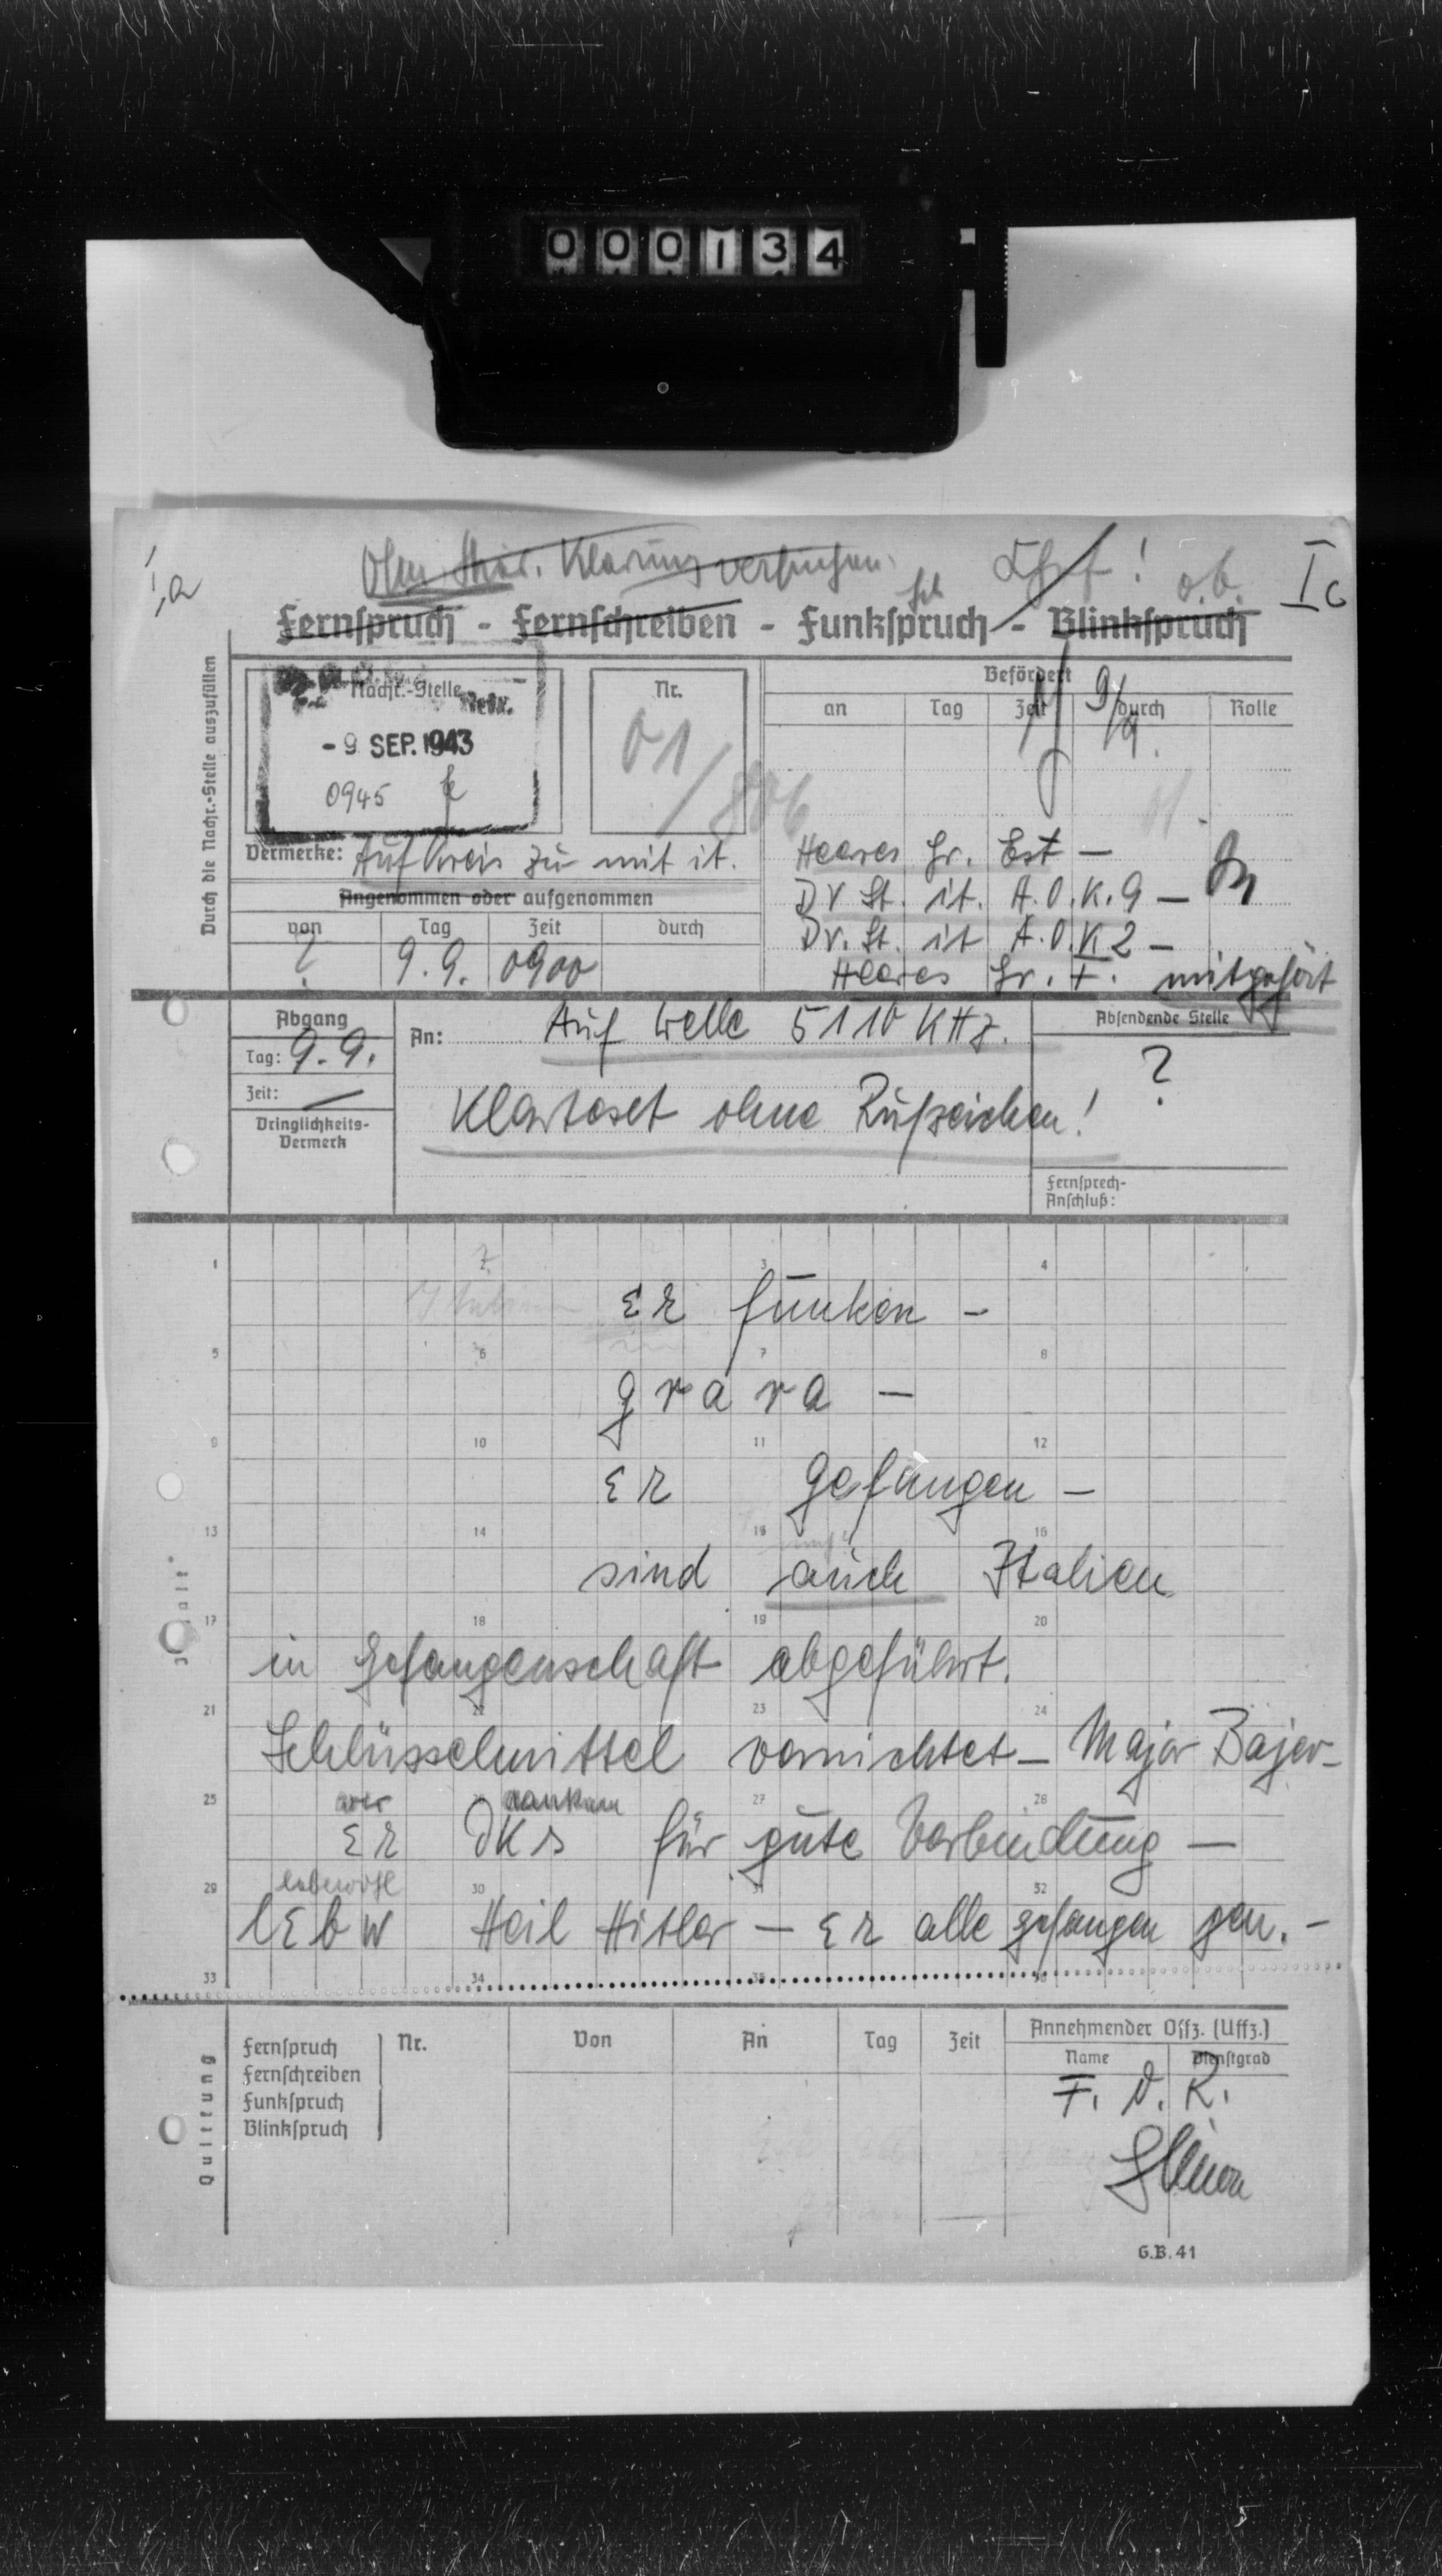 000134
Ia
Klärung versuchen.
Chef!
o.b.
Ic
Fernspruch - Fernschreiben - Funkspruch - Blinkspruch
Durch die Nachr.-Stelle auszufüllen
Nachr.-Stelle
- 9. SEP. 1943
0945
Nr.
01/
Befördert
9/9.
an Tag Zeit durch Rolle
Vermerke: Auf Kreis zu mit it.
Heeres Gr. Est —
Angenommen oder aufgenommen
DV St. it. A.O.K. 9 —
von Tag Zeit durch
Dv. St. it A.O.K 2 —
? 9.9. 0900
Heeres Gr. F. mitgehört
Abgang
Tag: 9.9.
Zeit: —
Dringlichkeits-
Vermerk
An: Auf Welle 5110 KHz.
Klartext ohne Rufzeichen!
Absendende Stelle
?
Fernsprech-
Anschluß:
1 2 3 4
er funken —
5 6 7 8
g r a r a —
9 10 11 12
er gefangen —
13 14 15 16
sind auch Italien
17 18 19 20
in Gefangenschaft abgeführt.
21 22 23 24
Schlüsselmittel vernichtet — Major Bajer —
25 27 28
wir danken
er dks für gute Verbindung —
29 30 31 32
lebewohl
lebw Heil Hitler — er alle gefangen gen. —
33 34 35 36
Quittung
Fernspruch
Fernschreiben
Funkspruch
Blinkspruch
Nr. Von An Tag Zeit
Annehmender Offz. (Uffz.)
Name Dienstgrad
F. d. R.
G.B. 41